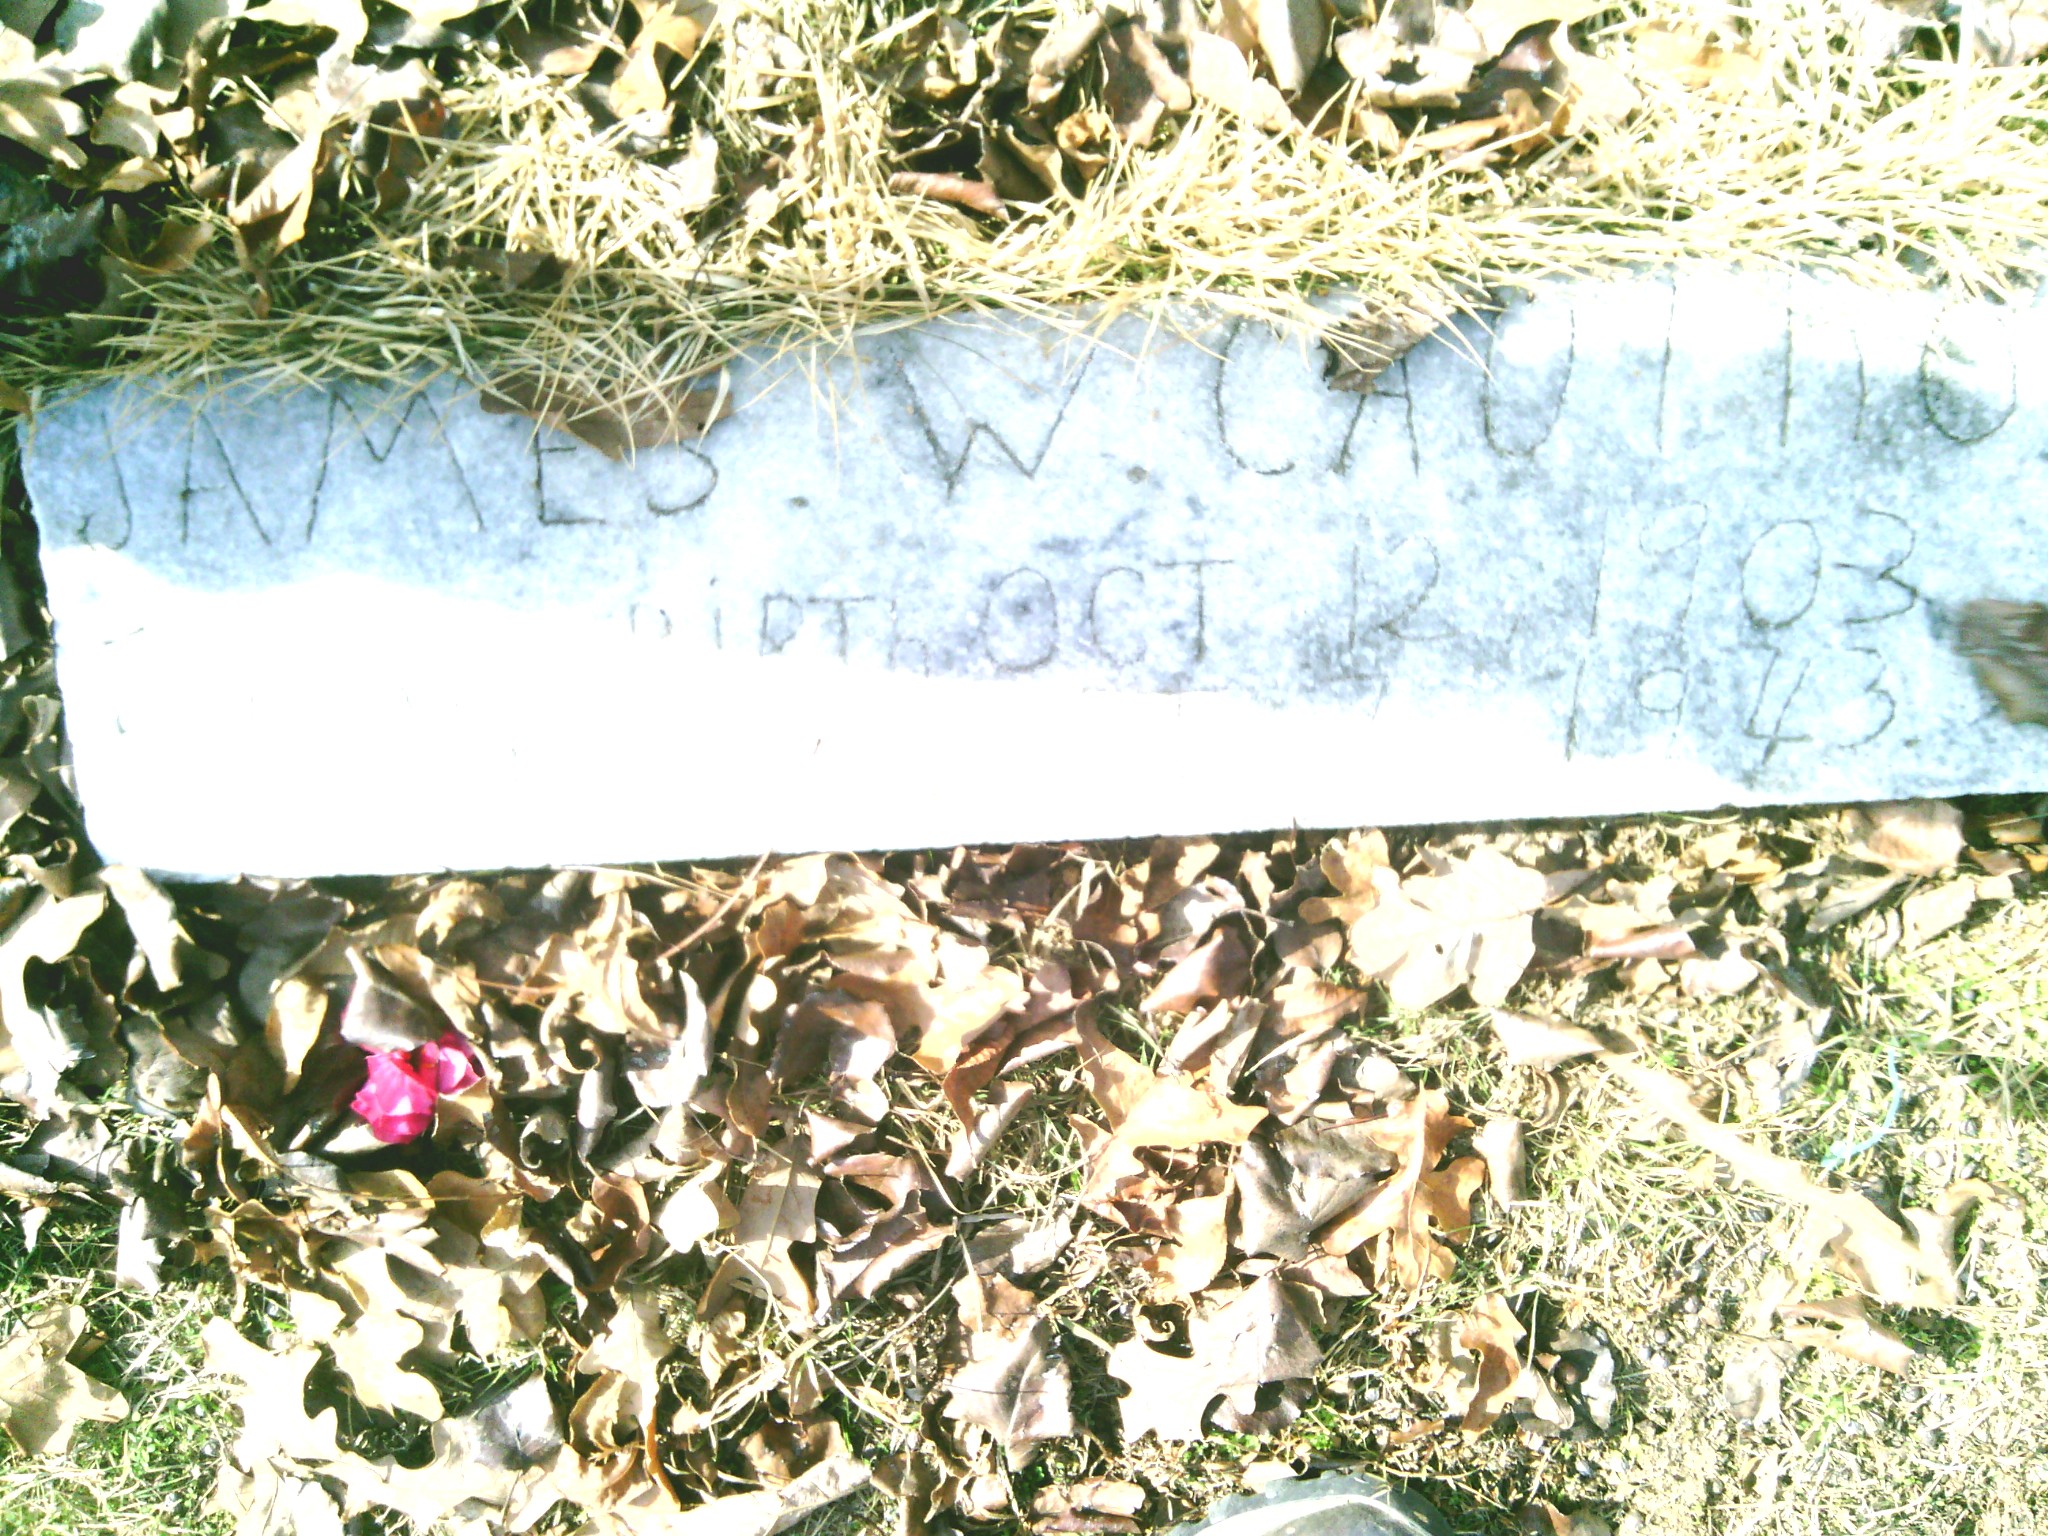 JAMES. W. CAUTHO
BIRTH OCT 12, 1903
1943.